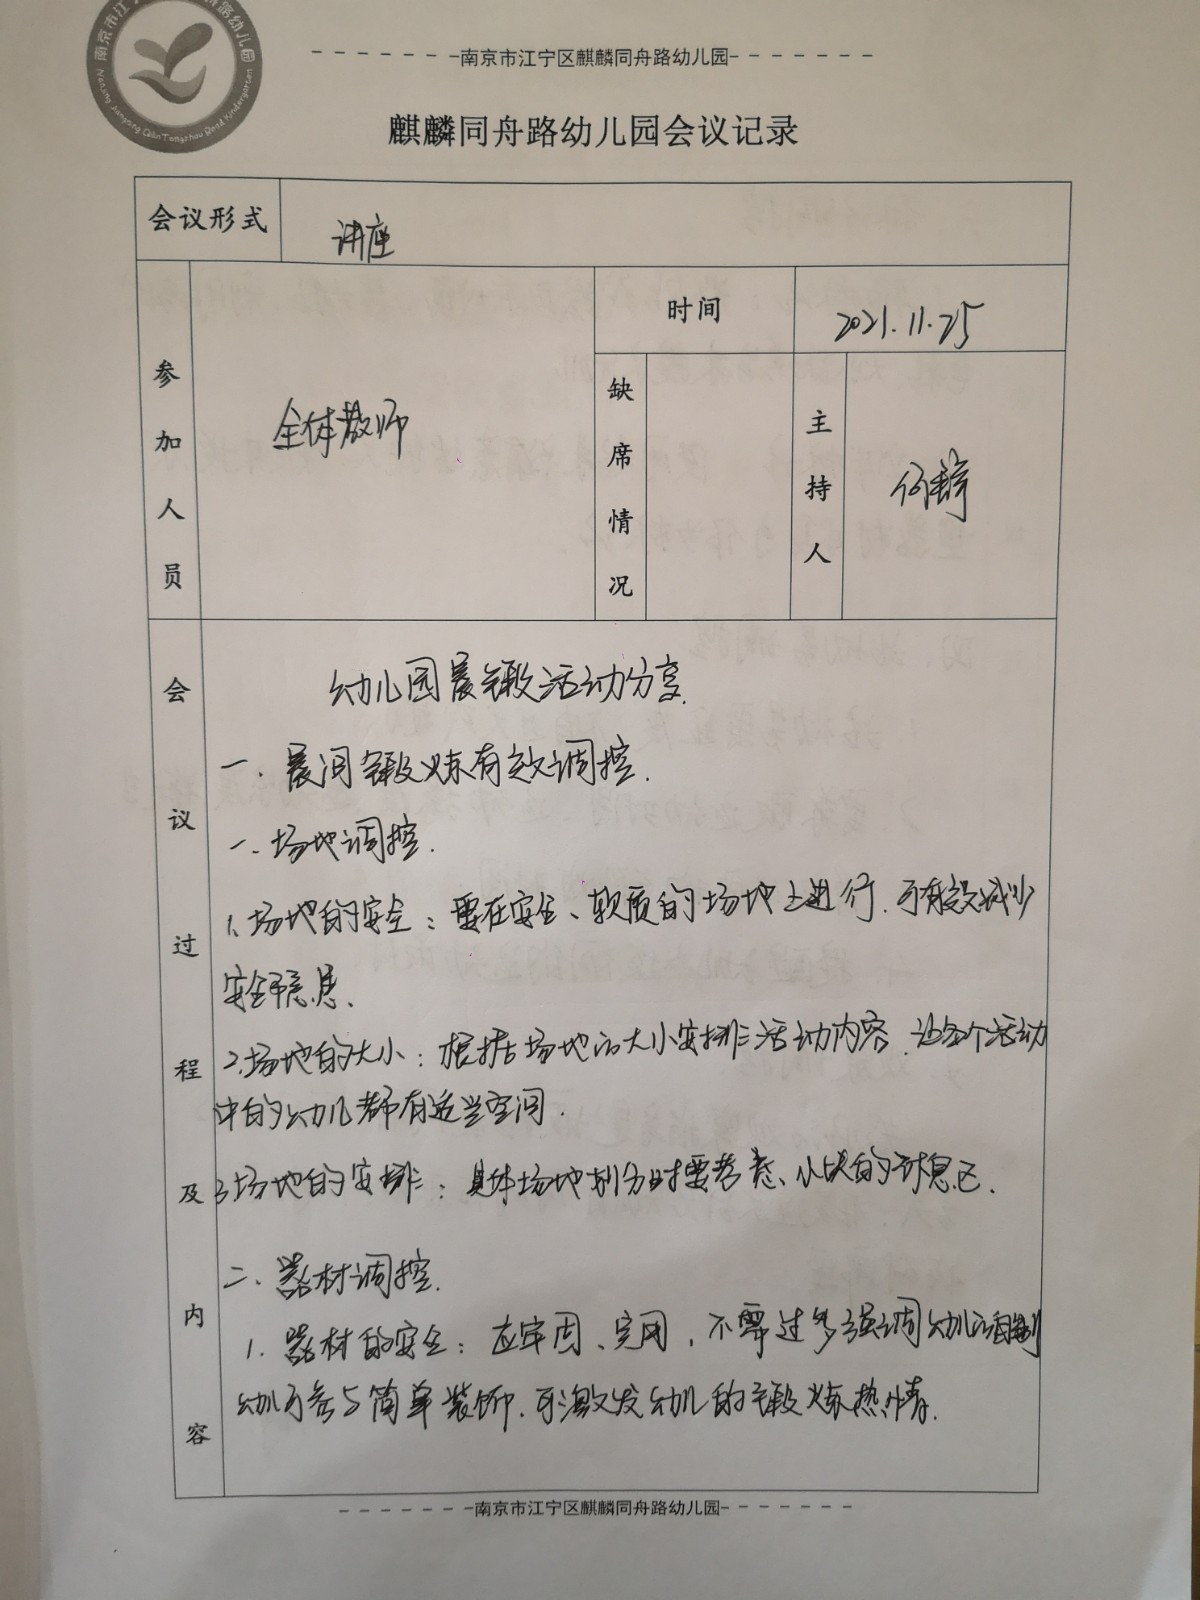 -南京市江宁区麒麟同舟路幼儿园-
麒麟同舟路幼儿园会议记录
会议形式 讲座
参加人员 全体教师
时间 2021.11.25
缺席情况
主持人 何
会议过程及内容
幼儿园晨锻活动分享
一、晨间锻炼有效调控.
一、场地调控.
1、场地的安全：要在安全、软质的场地上进行.可有效减少
安全隐患、
2.场地的大小：根据场地的大小安排活动内容.让每个活动
中的幼儿都有适当空间.
3场地的安排：具体场地划分时要考虑、小块的休息区.
二、器材调控.
1.器材的安全：应牢固、实用，不需过多强调幼儿自制
幼儿可参与简单装饰.可激发幼儿的锻炼热情.
-南京市江宁区麒麟同舟路幼儿园-